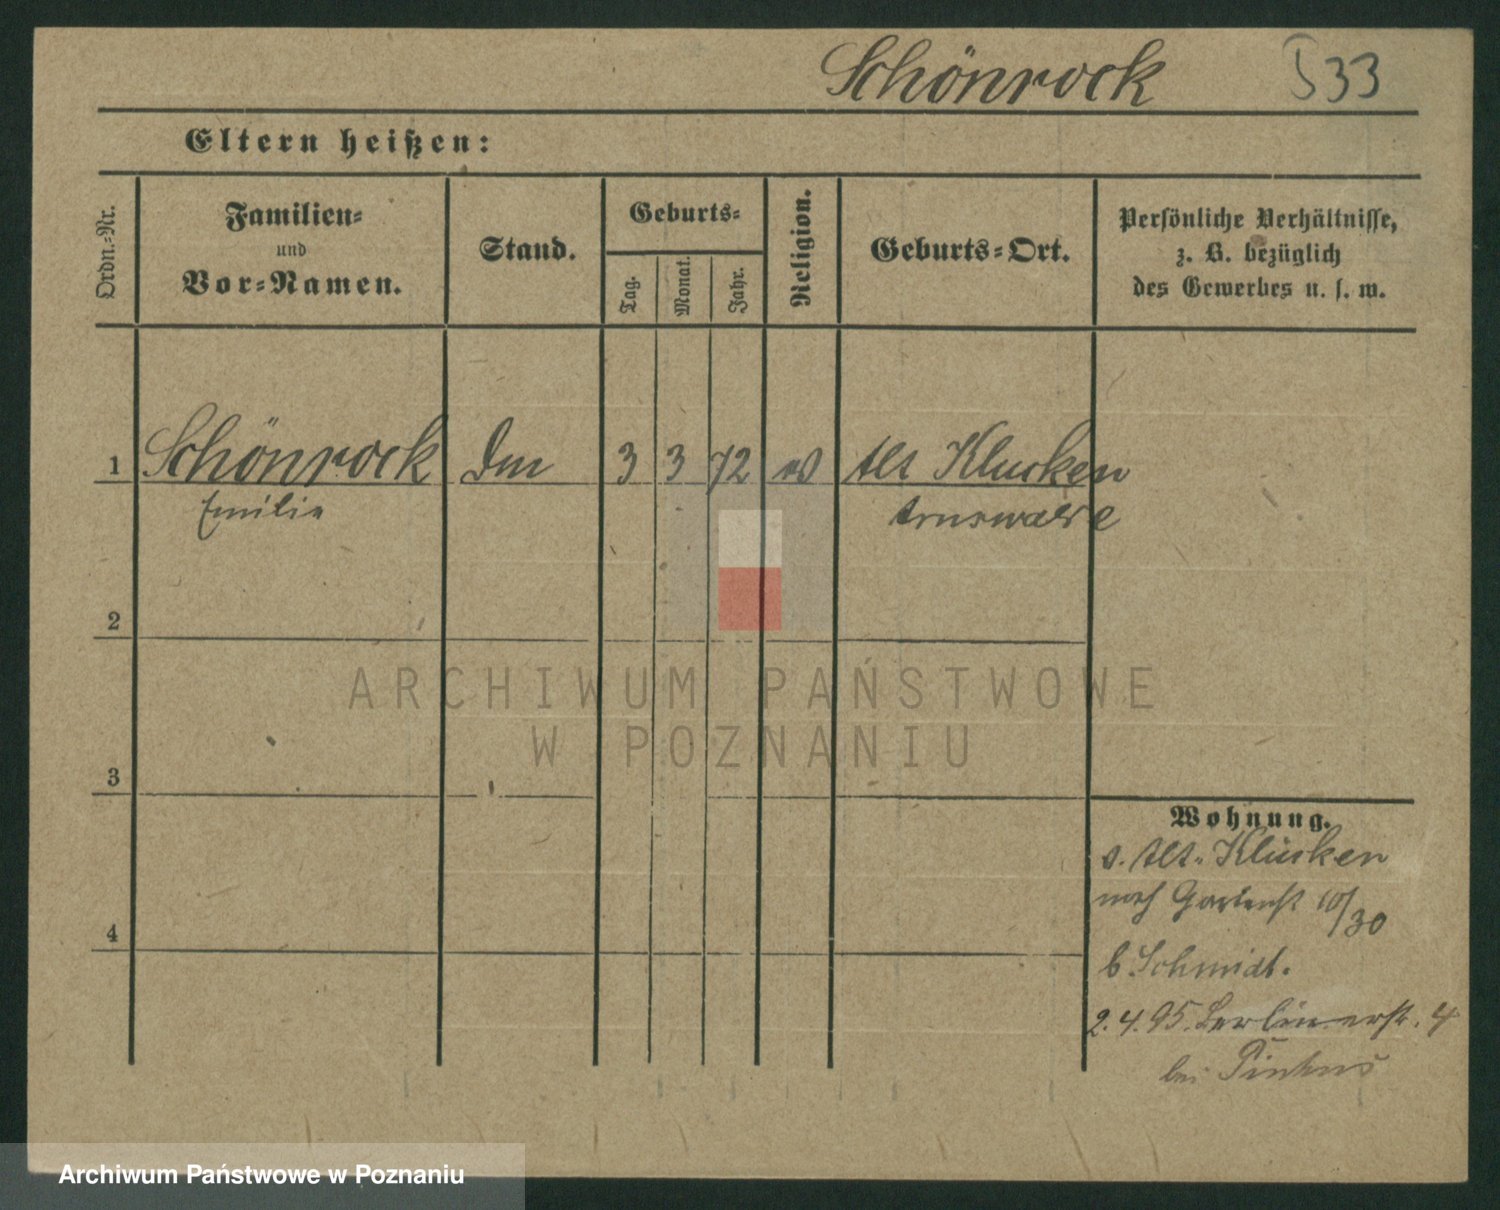 Schönrock 533
Eltern heißen:
Ordn.-Nr.
Familien-
und
Vor-Namen.
Stand.
Geburts-
Tag.
Monat.
Jahr.
Religion.
Geburts-Ort.
Persönliche Verhältnisse,
z. B. bezüglich
des Gewerbes u. s. w.
1 Schönrock 3 3 72 ev Alt Klucken
Emilie Arnswalde
2
3
4
Wohnung.
v. Alt-Klücken
nach Gartenst 10/30
b. Schmidt.
2.4.95. Berlinerstr. 4
bei Pinkus
ARCHIWUM PAŃSTWOWE
W POZNANIU
Archiwum Państwowe w Poznaniu